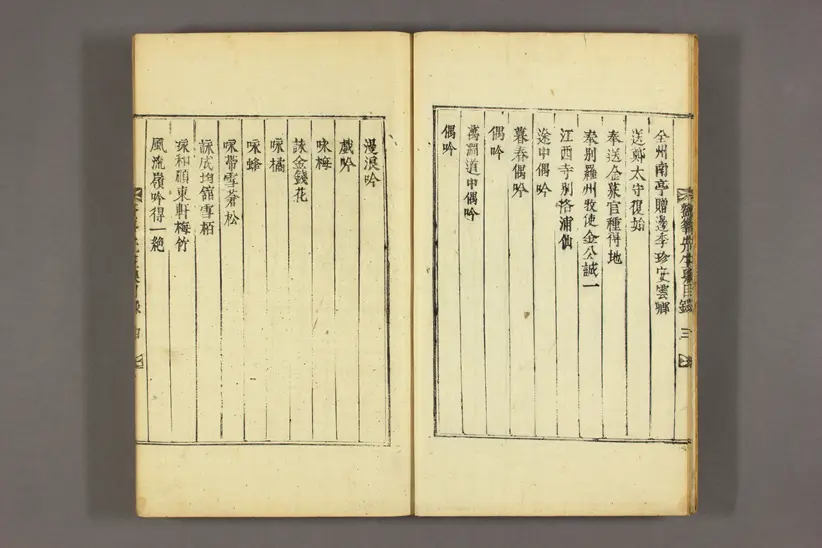 全州南亭贈邊季珍安雲卿
送鄭太守復始
奉送金萊官種得地
奉別羅州牧使金公誠一
江西寺別洛浦仙
途中偶吟
暮春偶吟
偶吟
萬瀾道中偶吟
偶吟
漫浪吟
戯吟
咏梅
詠金錢花
咏橘
咏蜂
咏帶雪蒼松
詠成均館雪栢
咏和順東軒梅竹
風流嶺吟得一絶